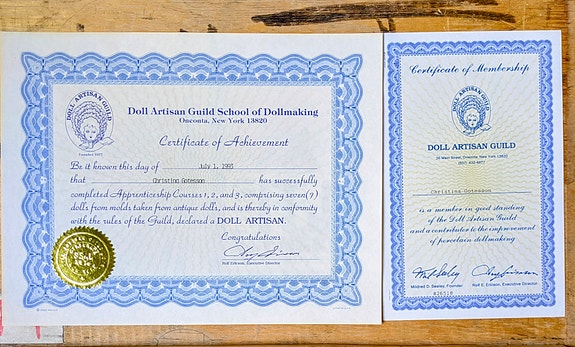 DOLL ARTISAN GUILD
Founded 1977
Doll Artisan Guild School of Dollmaking
Oneonta, New York 13820
Certificate of Achievement
Be it known this day of July 1, 1991
that Christina Gotesson has successfully
completed Apprenticeship Courses 1, 2, and 3, comprising seven (7)
dolls from molds taken from antique dolls, and is thereby in conformity
with the rules of the Guild, declared a DOLL ARTISAN.
Congratulations
Rolf Ericson, Executive Director
Certificate of Membership
DOLL ARTISAN GUILD
DOLL ARTISAN GUILD
35 Main Street, Oneonta, New York 13820
(607) 432-4977
Christina Gotesson
is a member in good standing
of the Doll Artisan Guild
and a contributor to the improvement
of porcelain dollmaking
Mildred D. Seeley, Founder
Rolf E. Ericson, Executive Director